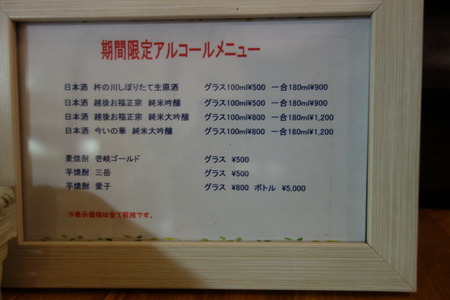 期間限定アルコールメニュー
日本酒 杵の川しぼりたて生原酒 グラス100ml¥500 一合180ml¥900
日本酒 越後お福正宗 純米吟醸 グラス100ml¥500 一合180ml¥900
日本酒 越後お福正宗 純米大吟醸 グラス100ml¥800 一合180ml¥1,200
日本酒 今いの華 純米大吟醸 グラス100ml¥800 一合180ml¥1,200
麦焼酎 壱岐ゴールド グラス ¥500
芋焼酎 三岳 グラス ¥500
芋焼酎 愛子 グラス ¥800 ボトル ¥5,000
※表示価格は全て税抜です。